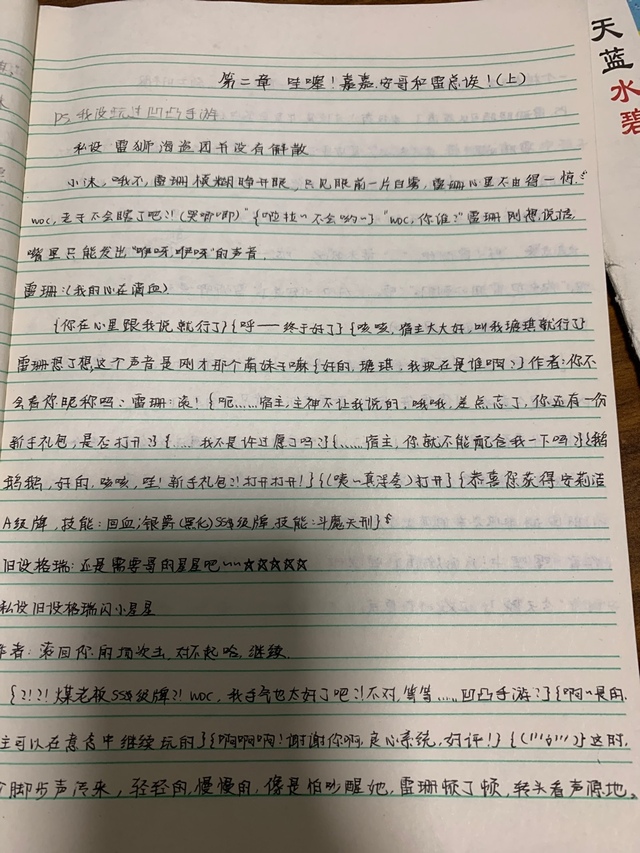 天蓝水碧
第二章 哇喔!嘉嘉,安哥和雷总诶!(上)
PS,我没玩过凹凸手游
私设雷狮海盗团并没有解散
小沐,哦不,雷珊模糊睁开眼,只见眼前一片白雾,雷珊心里不由得一惊.
"woc,老子不会瞎了吧?!(哭唧唧)"{啦拉~不会哟~}"woc,你谁?"雷珊刚想说话
嘴里只能发出"咿呀,咿呀"的声音.
雷珊:(我的心在滴血)
{你在心里跟我说就行了}{呼——终于好了}{咳咳,宿主大大好,叫我琪就行了}
雷珊想了想,这个声音是刚才那个萌妹子嘛{好的,琪,我现在是谁啊?}作者:你不
会看你昵称吗?雷珊:滚!{呃……宿主,主神不让我说的,哦哦,差点忘了,你还有一份
新手礼包,是否打开?}{……我不是许过愿了吗?}{……宿主,你就不能配合我一下吗?}{鹅
鹅鹅,好的,咳咳,哇!新手礼包?!打开打开!}{(咦~真浮夸)打开}{恭喜您获得安莉洁
A级牌,技能:回血;银爵(黑化)SSS级牌,技能:斗魔天刑}
旧设格瑞:还是需要哥的星星吧~~☆☆☆☆☆
私设旧设格瑞闪小星星
作者:滚回你的挡次去,对不起哈,继续.
{?!?!煤老板SSS级牌?!woc,我手气也太好了吧?!不对,等等……凹凸手游?}{啊~是的,
主可以在意念中继续玩的}{啊啊啊!谢谢你啊,良心系统,好评!}{}这时,
个脚步声传来,轻轻的,慢慢的,像是怕吵醒她,雷珊顿了顿,转头看声源地。